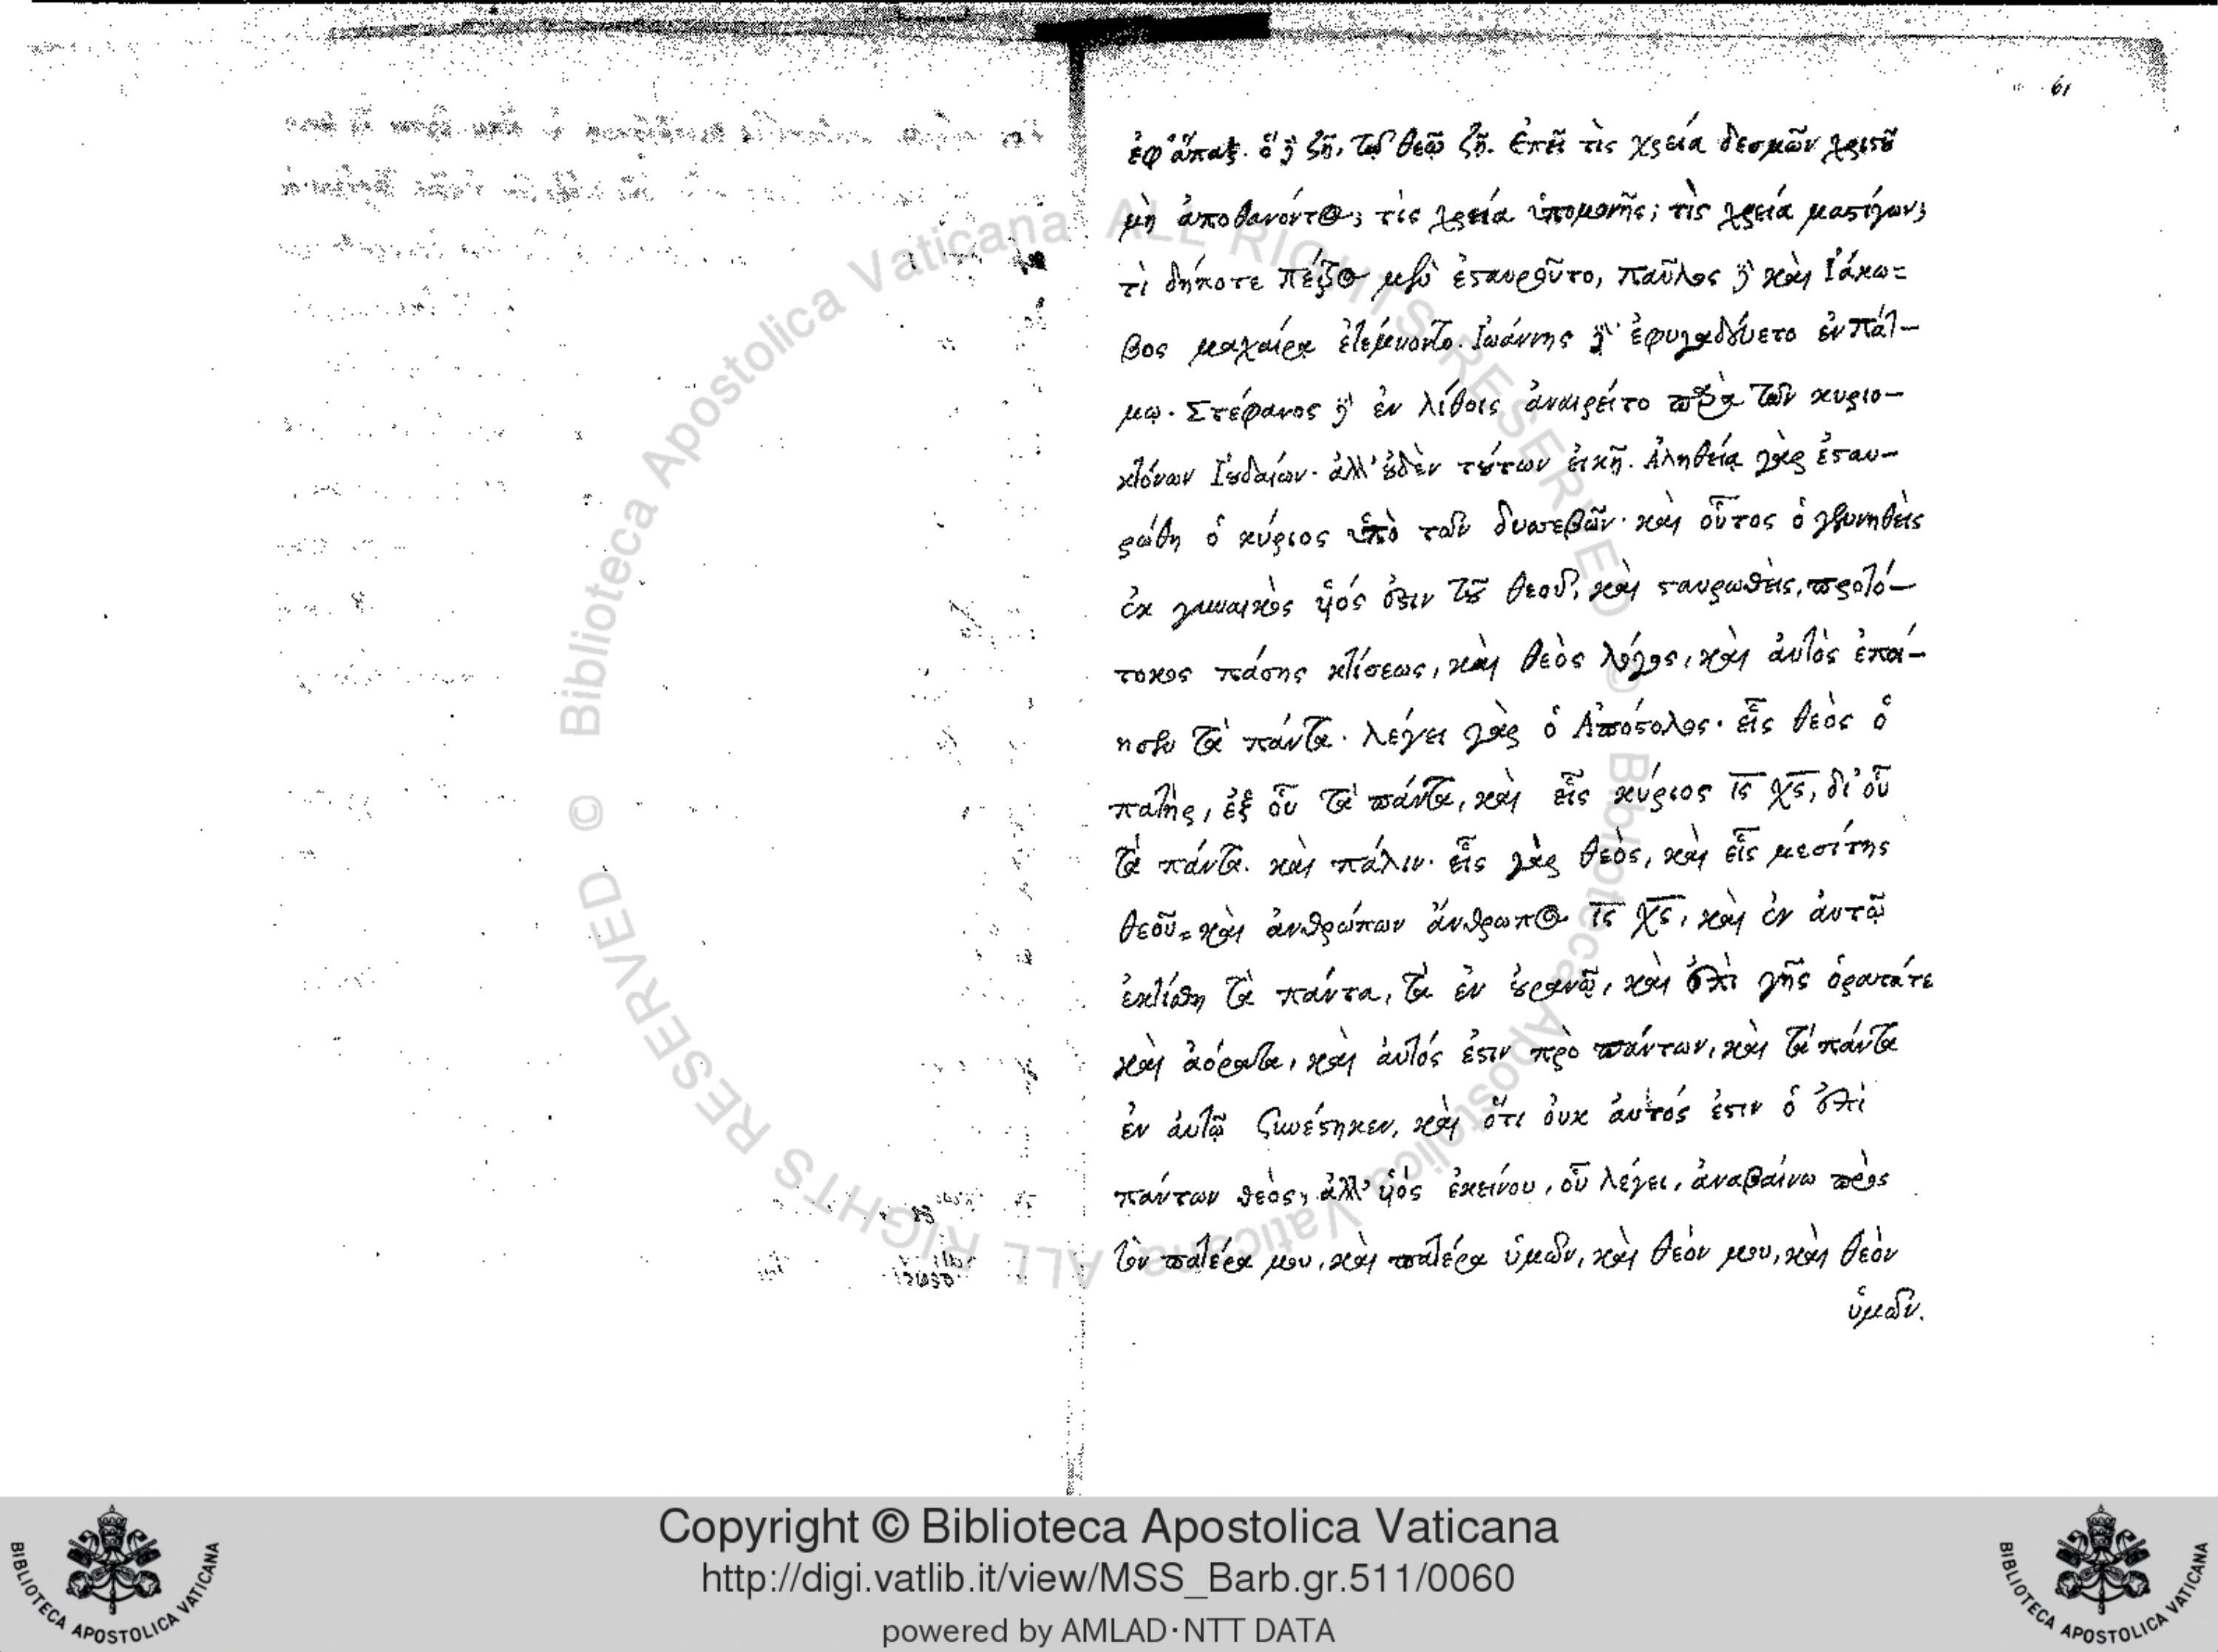 61
ἐφ' ἅπαξ. ὃ δὲ ζῇ, τῷ θεῷ ζῇ. ἐπεὶ τὶς χρεία δεσμῶν χριστοῦ
μὴ ἀποθανόντος; τὶς χρεία ὑπομονῆς; τὶς χρεία μαστίγων;
τὶ δήποτε Πέτρος μὲν ἐσταυροῦτο, παῦλος δὲ καὶ Ἰάκω=
βος μαχαίρᾳ ἐτέμνοντο. Ἰωάννης δὲ ἐφυγαδεύετο ἐν Πάτ-
μῳ. Στέφανος δὲ ἐν λίθοις ἀναιρεῖτο παρὰ τῶν κυριο-
κτόνων Ἰουδαίων. ἀλλ' οὐδὲν τούτων εἰκῆ. Ἀληθείᾳ γὰρ ἐσταυ-
ρώθη ὁ κύριος ὑπὸ τῶν δυσσεβῶν. καὶ οὗτος ὁ γεννηθεὶς
ἐκ γυναικὸς υἱός ἐστιν τοῦ θεοῦ, καὶ σταυρωθεὶς, πρωτό-
τοκος πάσης κτίσεως, καὶ θεὸς λόγος, καὶ αὐτὸς ἐποί-
ησεν τὰ πάντα. λέγει γὰρ ὁ Ἀπόστολος. εἷς θεὸς ὁ
πατὴρ, ἐξ οὗ τὰ πάντα, καὶ εἷς κύριος ις χς, δι' οὗ
τὰ πάντα. καὶ πάλιν. εἷς γὰρ θεὸς, καὶ εἷς μεσίτης
θεοῦ = καὶ ἀνθρώπων ἄνθρωπος ις χς, καὶ ἐν αὐτῷ
ἐκτίσθη τὰ πάντα, τὰ ἐν οὐρανῷ, καὶ ἐπὶ γῆς ὁρατάτε
καὶ ἀόρατα, καὶ αὐτός ἐστιν πρὸ πάντων, καὶ τὰ πάντα
ἐν αὐτῷ συνέστηκεν, καὶ ὅτι οὐκ αὐτός ἐστιν ὁ ἐπὶ
πάντων θεὸς, ἀλλ' υἱός ἐκείνου, οὗ λέγει, ἀναβαίνω πρὸς
τὸν πατέρα μου, καὶ πατέρα ὑμῶν, καὶ θεόν μου, καὶ θεὸν
ὑμῶν.
Biblioteca Apostolica Vaticana ALL RIGHTS RESERVED ©
Copyright © Biblioteca Apostolica Vaticana
http://digi.vatlib.it/view/MSS_Barb.gr.511/0060
powered by AMLAD·NTT DATA
BIBLIOTECA APOSTOLICA VATICANA
BIBLIOTECA APOSTOLICA VATICANA